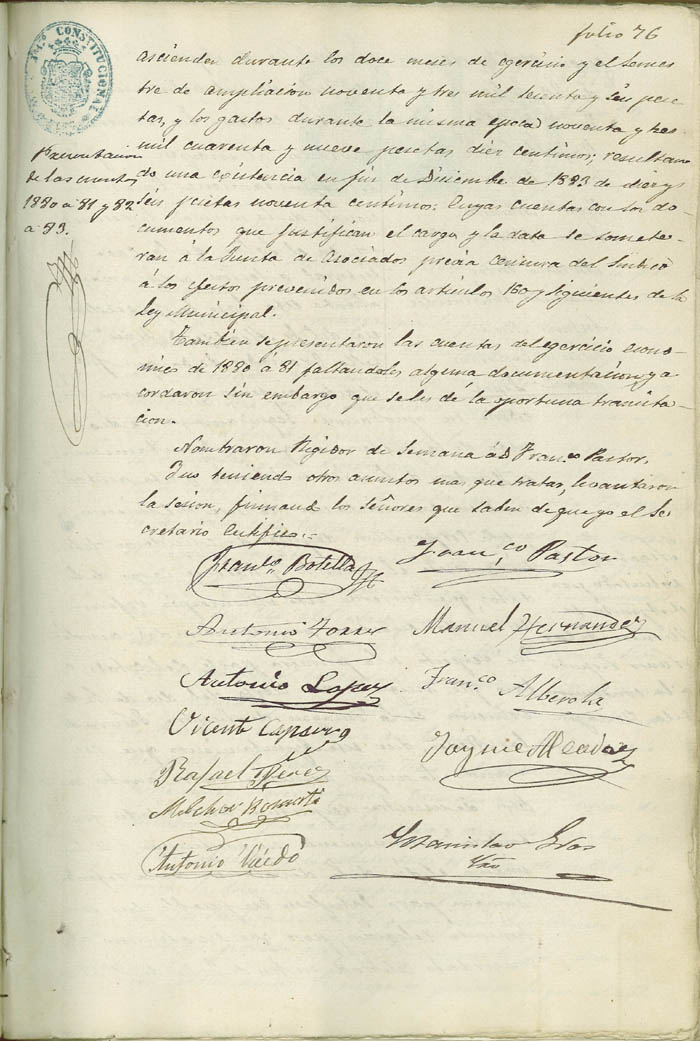 folio 76
CONSTITUCIONAL
ascienden durante los doce meses de egercicio y el Semes
tre de ampliacion noventa y tres mil sesenta y seis pese
tas, y los gastos durante la misma epoca noventa y tres
mil cuarenta y nueve pesetas diez centimos; resultan
do una existencia en fin de Diciembre de 1883 de diez y
seis pesetas noventa centimos: cuyas cuentas con los do
cumentos que justifican el cargo y la data se somete
ran á la Junta de Asociados previa censura del Sindico
á los efectos prevenidos en los articulos 160 y siguientes de la
Ley Municipal.
Presentacion
de las cuentas
1880 á 81 y 82
á 83.
Tambien se presentaron las cuentas del egercicio econo-
mico de 1880 á 81 faltandoles alguna documentacion, y a
cordaron sin embargo que se les dé la oportuna tramita-
cion.
Nombraron Regidor de Semana á D. Franco Pastor.
Y no teniendo otros asuntos mas que tratar, levantaron
la sesion, firmando los señores que saben de que yo el Se
cretario Certifico.=
Franco. Botella
Franco Pastor
Antonio Torres
Manuel Hernandez
Antonio Lopez
Franco Alberola
Vicente Caparro
Jayme
Rafael Perez
Melchor
Antonio
Estanislao
Srio